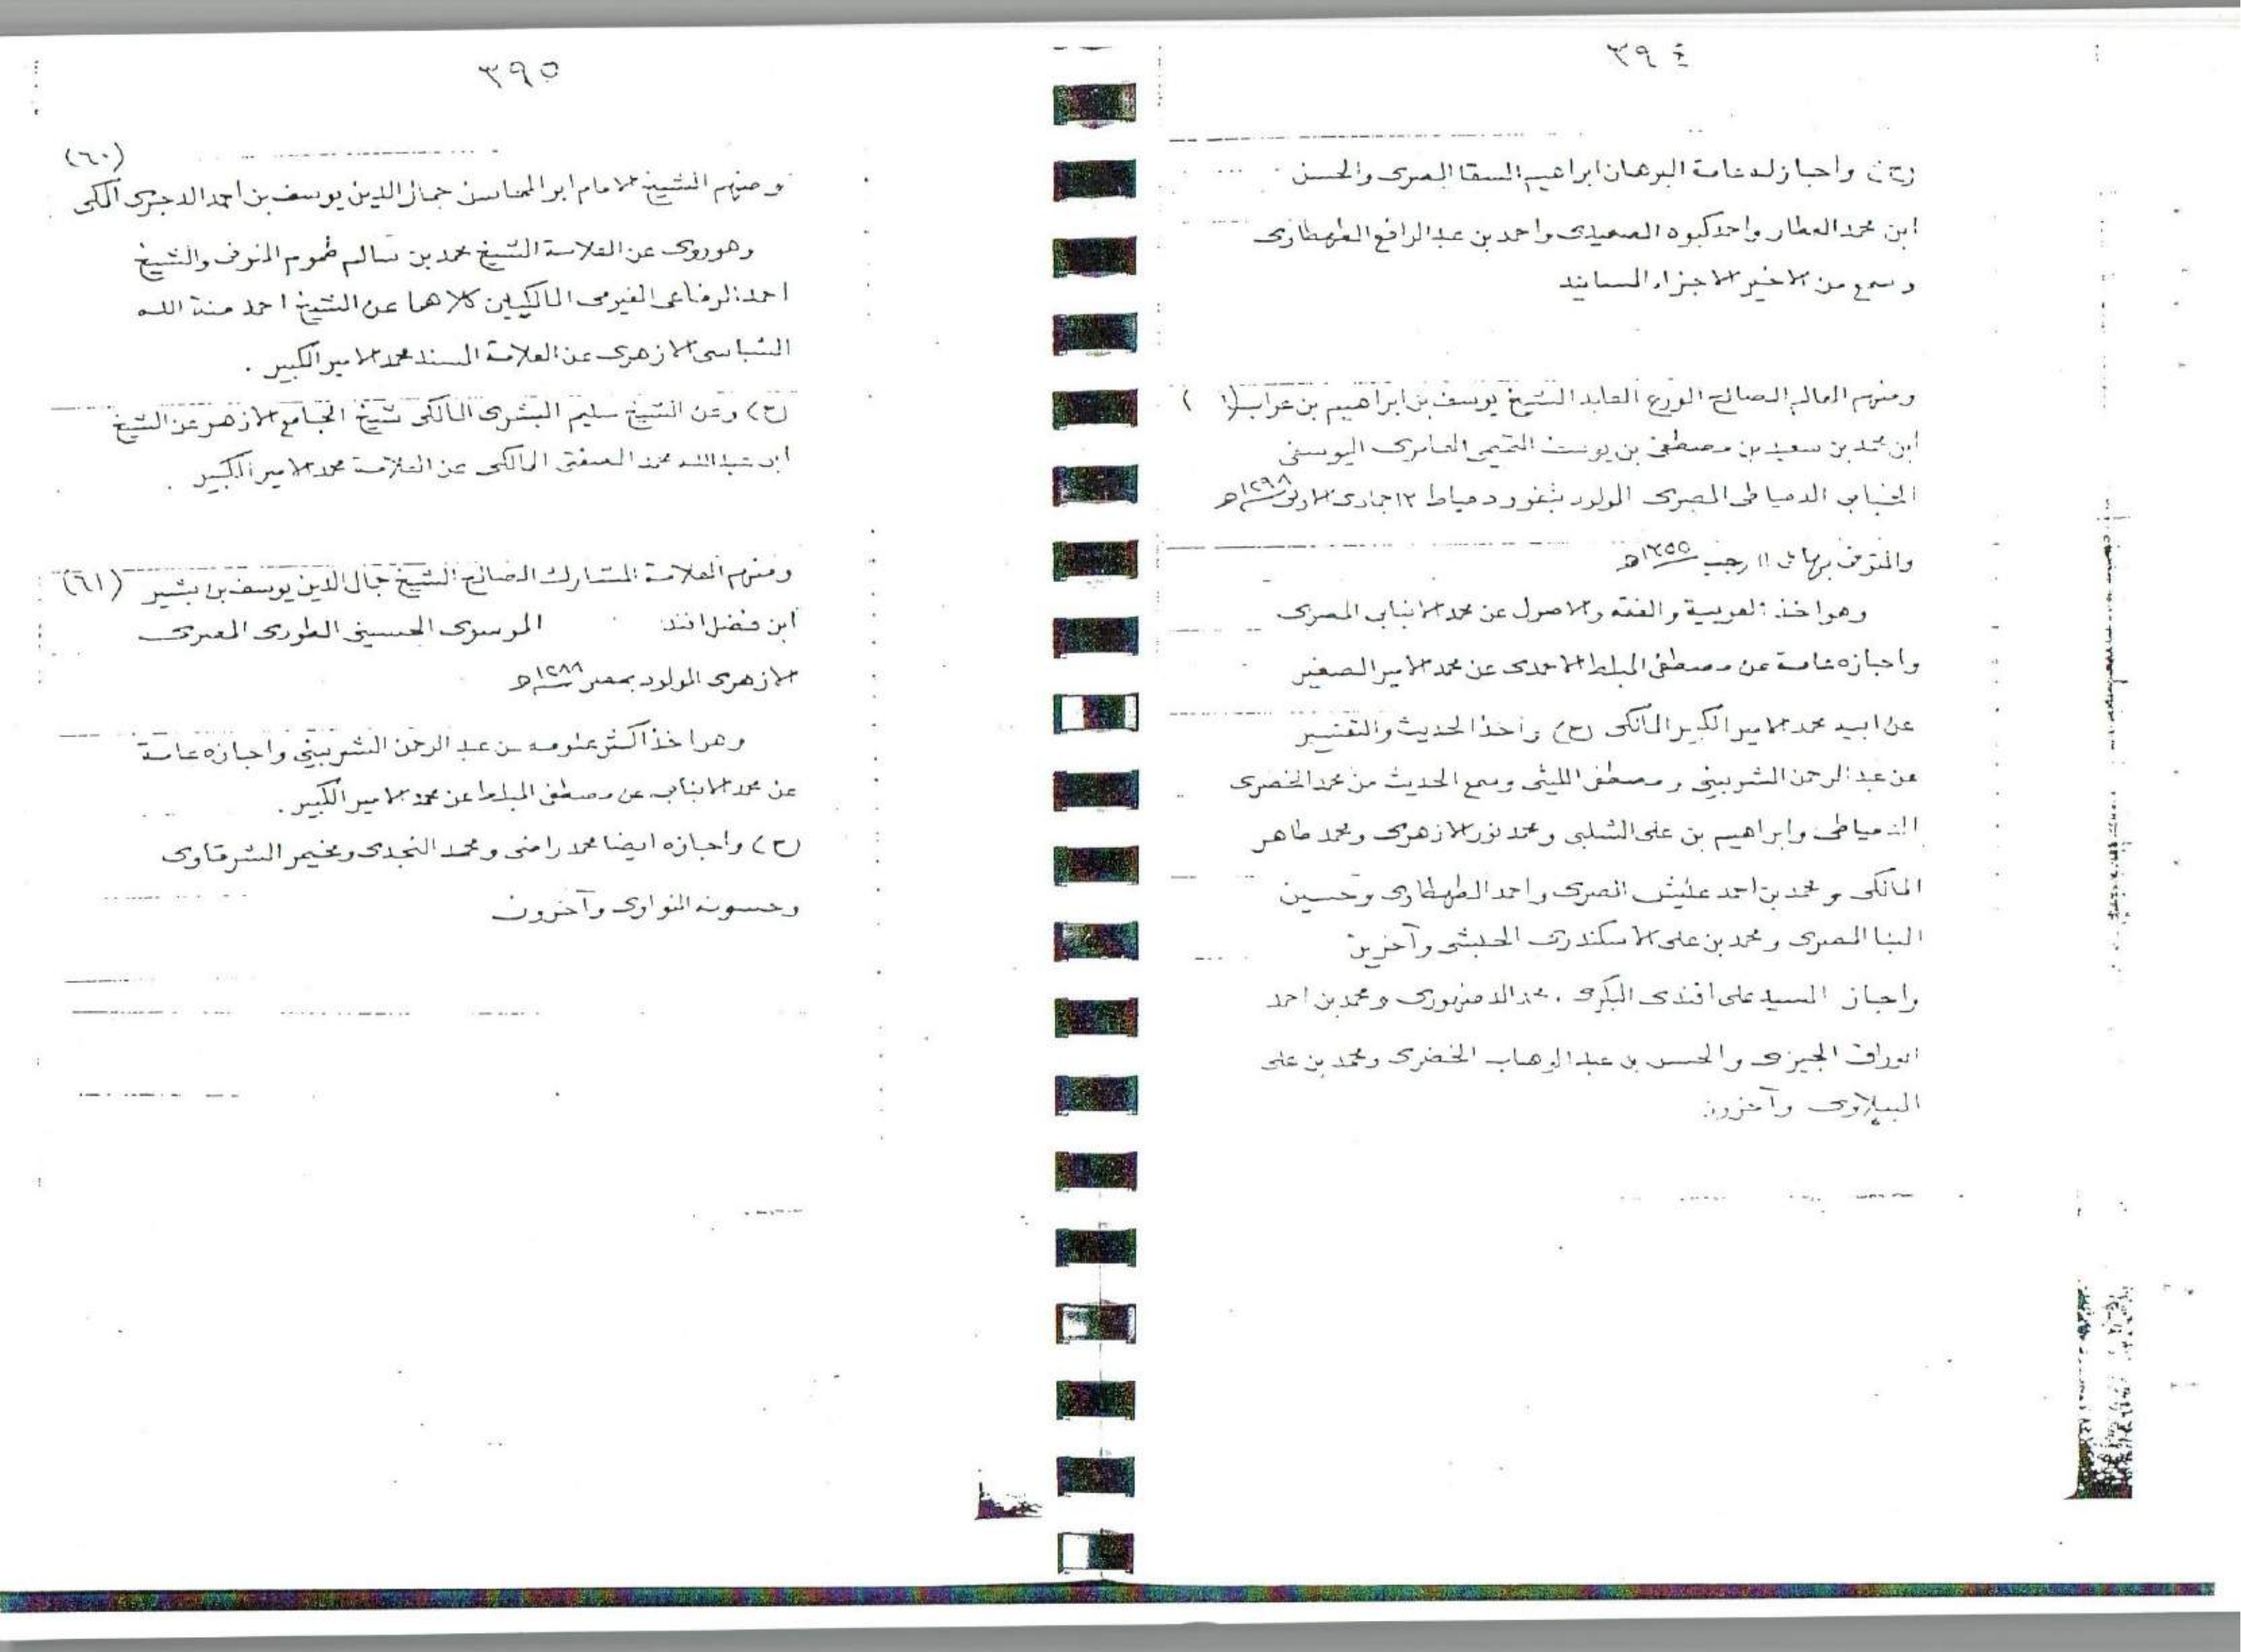 ٣٩٤
واجاز له عامة البرهان ابراهيم السقا المصرى والحسن
ابن محمد العطار واحمد كبوه الصعيدى واحمد بن عبد الرافع الطهطاوى
وسمع من الاخير الاجزاء المسانيد
ومنهم العالم الصالح الورع العابد الشيخ يوسف بن ابراهيم بن عراب
ابن محمد بن سعيد بن مصطفى بن يوسف التميمى العامرى اليوسفى
الدمياطى المصرى المولود بثغور دمياط ١٢ جمادى الاولى ١٢٩٨هـ
والمتوفى بها فى ١١ رجب ١٣٥٥هـ
وهو اخذ العربية والفقه والاصول عن محمد الانبابى المصرى
واجازه عامة عن مصطفى المبلط الاحمدى عن محمد الامير الصغير
عن ابيه محمد الامير الكبير المالكى (ح) واخذ الحديث والتفسير
عن عبد الرحمن الشربينى ومصطفى الليثى وسمع الحديث من محمد الخضرى
الدمياطى وابراهيم بن على الشلبى ومحمد نور الازهرى ومحمد طاهر
المالكى ومحمد بن احمد عليش المصرى واحمد الطهطاوى وحسين
البنا المصرى ومحمد بن على الاسكندرى الحبشى وآخرين
واجاز السيد على افندى البكرى الدمنهورى ومحمد بن احمد
الوراق الجيزى والحسن بن عبد الوهاب الخضرى ومحمد بن على
الببلاوى وآخرون
٣٩٥
(٦٠)
ومنهم الشيخ الامام ابو المحاسن جمال الدين يوسف بن احمد الدجوى المالكى
وهو روى عن العلامة الشيخ محمد بن سالم طموم المنوفى والشيخ
احمد الرفاعى الفيومى المالكيين كلاهما عن الشيخ احمد منة الله
الشباسى الازهرى عن العلامة المسند محمد الامير الكبير .
(ح) وعن الشيخ سليم البشرى المالكى شيخ الجامع الازهر عن الشيخ
ابى عبد الله محمد الصفتى المالكى عن العلامة محمد الامير الكبير .
ومنهم العلامة المشارك الصالح الشيخ جمال الدين يوسف بن بشير (٦١)
ابن فضل افند الموسوى الحسينى الطورى المصرى
الازهرى المولود بمصر ١٢٨٨هـ
وهو اخذ اكثر علومه من عبد الرحمن الشربينى واجازه عامة
عن محمد الانبابى عن مصطفى المبلط عن محمد الامير الكبير .
(ح) واجازه ايضا محمد راضى ومحمد النجدى ومخيمر الشرقاوى
وحسونه النواوى وآخرون